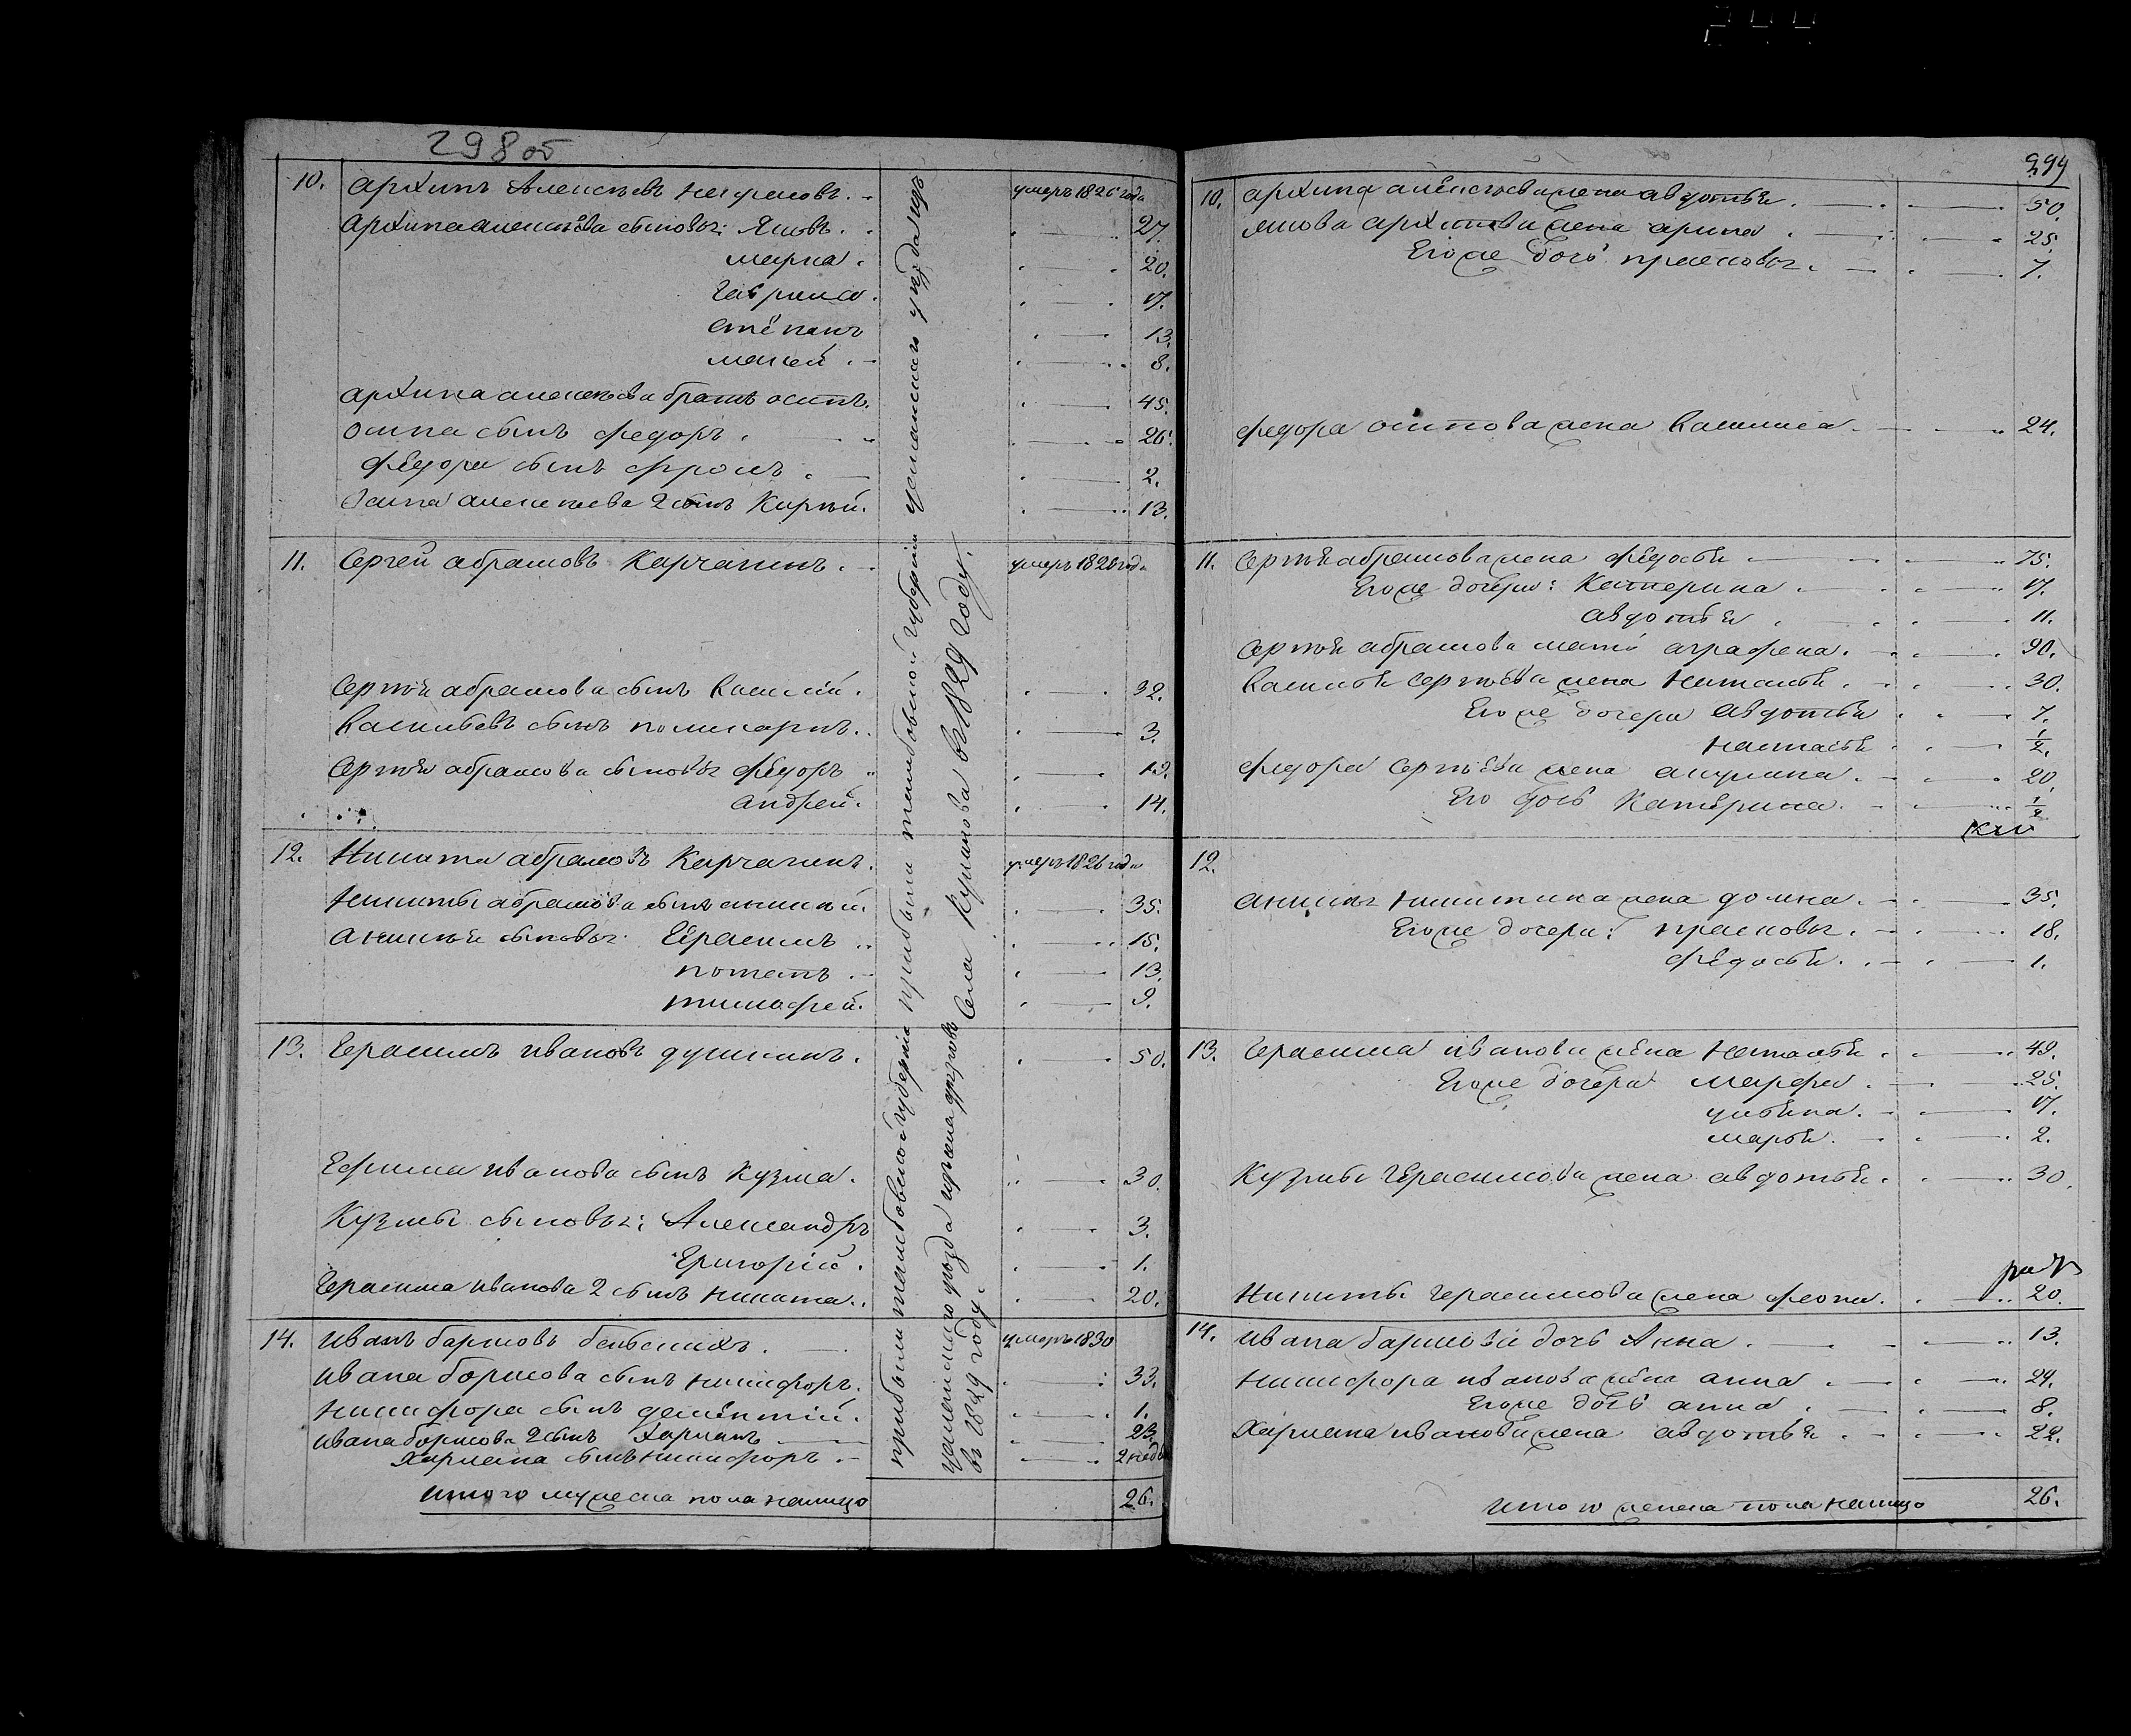 298 об
10. Архипъ Алексѣевъ Некрасовъ. умеръ 1826 года
Архипа алексѣева сыновья: Яковъ. 27.
марка. 20.
Гаврила. 17.
степанъ 13.
макей. 8.
Архипа алексѣева братъ осипъ. 45.
осипа сынъ федоръ. 26.
Федора сынъ фролъ. 2.
Осипа алексѣева 2 сынъ Кирѣй. 13.
11. Сергей абрамовъ Карчагинъ. умеръ 1826 года
Сергѣя абрамова сынъ василій. 32.
Васильевъ сынъ поликарпъ. 3.
Сергѣя абрамова сыновья федоръ 19.
андрей. 14.
12. Никита абрамовъ Карчагинъ. умеръ 1826 года
Никиты абрамова сынъ 35.
сыновья Герасимъ 15.
потапъ 13.
тимофей. 9.
13. Герасимъ ивановъ 50.
иванова сынъ Кузма. 30.
Кузмы сыновья: Александръ 3.
Григорій. 1.
Герасима иванова 2 сынъ никита. 20.
14. Иванъ барисовъ умеръ 1830
Ивана борисова сынъ никифоръ. 33.
Никифора сынъ деменътій. 1.
Ивана борисова 2 сынъ Харланъ 23.
Харлана сынъ никифоръ 2 нед
Итого мужеска пола налицо 26.
прибыли тамбовской губерніи
въ 1829 году.
прибыли тамбовской губерніи уезда изъ
села въ 1829 году.
299
10. Архипа алексѣева жена авдотья. 50.
Якова архипова жена арина. 25.
Его же дочь прасковья. 7.
федора осипова жена василиса. 24.
11. Сергѣя абрамова жена федосья 75.
Его же дочери: Катерина. 17.
авдотья 11.
Сергѣя абрамова мать аграфена. 90.
Василья Сергѣева жена Наталья. 30.
Его же дочери Авдотья 7.
настасья 1/2.
федора Сергѣева жена акулина. 20.
Его дочь Катерина. 1/2
12.
Никитина жена домна. 35.
Его же дочери: прасковья. 18.
федосья. 1.
13. Герасима иванова жена Наталья 49.
Его же дочери Марфа. 25.
ульяна. 17.
марья. 2.
Кузмы Герасимова жена авдотья. 30.
Никиты герасимова жена 20.
14. Ивана барисова дочь Анна. 13.
Никифора иванова жена анна 24.
Его же дочь анна 8.
Харлана иванова жена авдотья 22.
Итого женска пола налицо 26.